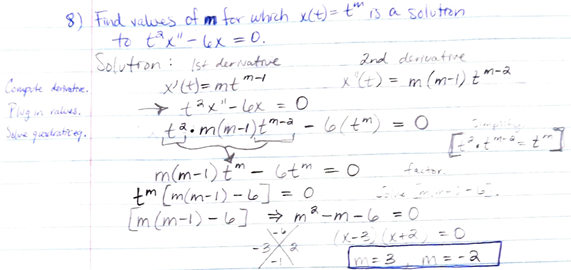 8) Find values of m for which x(t) = t^m is a solution
to t²x" - 6x = 0.
Solution: 1st derivative 2nd derivative
Compute derivative. x'(t) = mt^m-1 x"(t) = m(m-1)t^m-2
Plug in values. → t²x" - 6x = 0
Solve quadratic eq. t² • m(m-1)t^m-2 - 6(t^m) = 0 Simplify
[t² • t^m-2 = t^m]
m(m-1)t^m - 6t^m = 0 factor.
t^m [m(m-1) - 6] = 0 Solve [m(m-1)-6].
[m(m-1) - 6] ⇒ m² - m - 6 = 0
-6
-3 2 (x-3)(x+2) = 0
-1 m = 3, m = -2